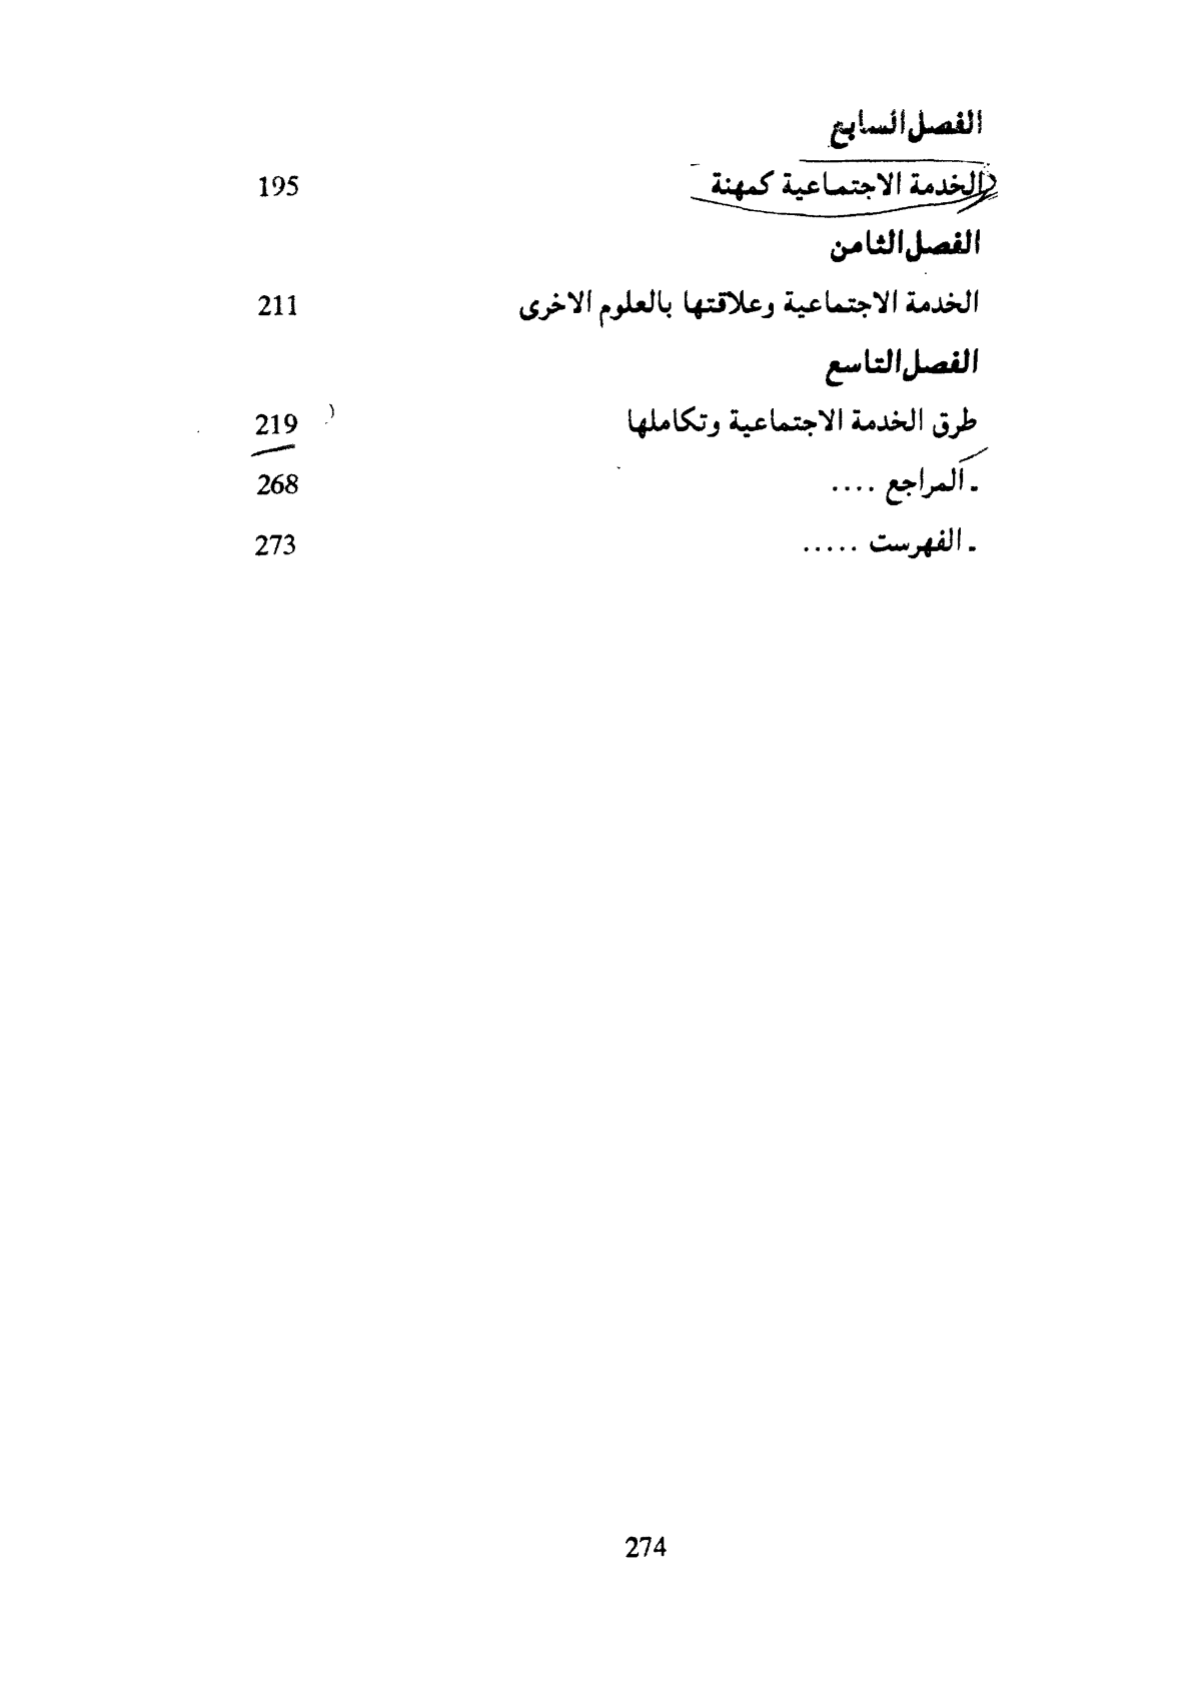 الفصل السابع
الخدمة الاجتماعية كمهنة 195
الفصل الثامن
الخدمة الاجتماعية وعلاقتها بالعلوم الاخرى 211
الفصل التاسع
طرق الخدمة الاجتماعية وتكاملها 219
ـ المراجع .... 268
ـ الفهرست ..... 273
274